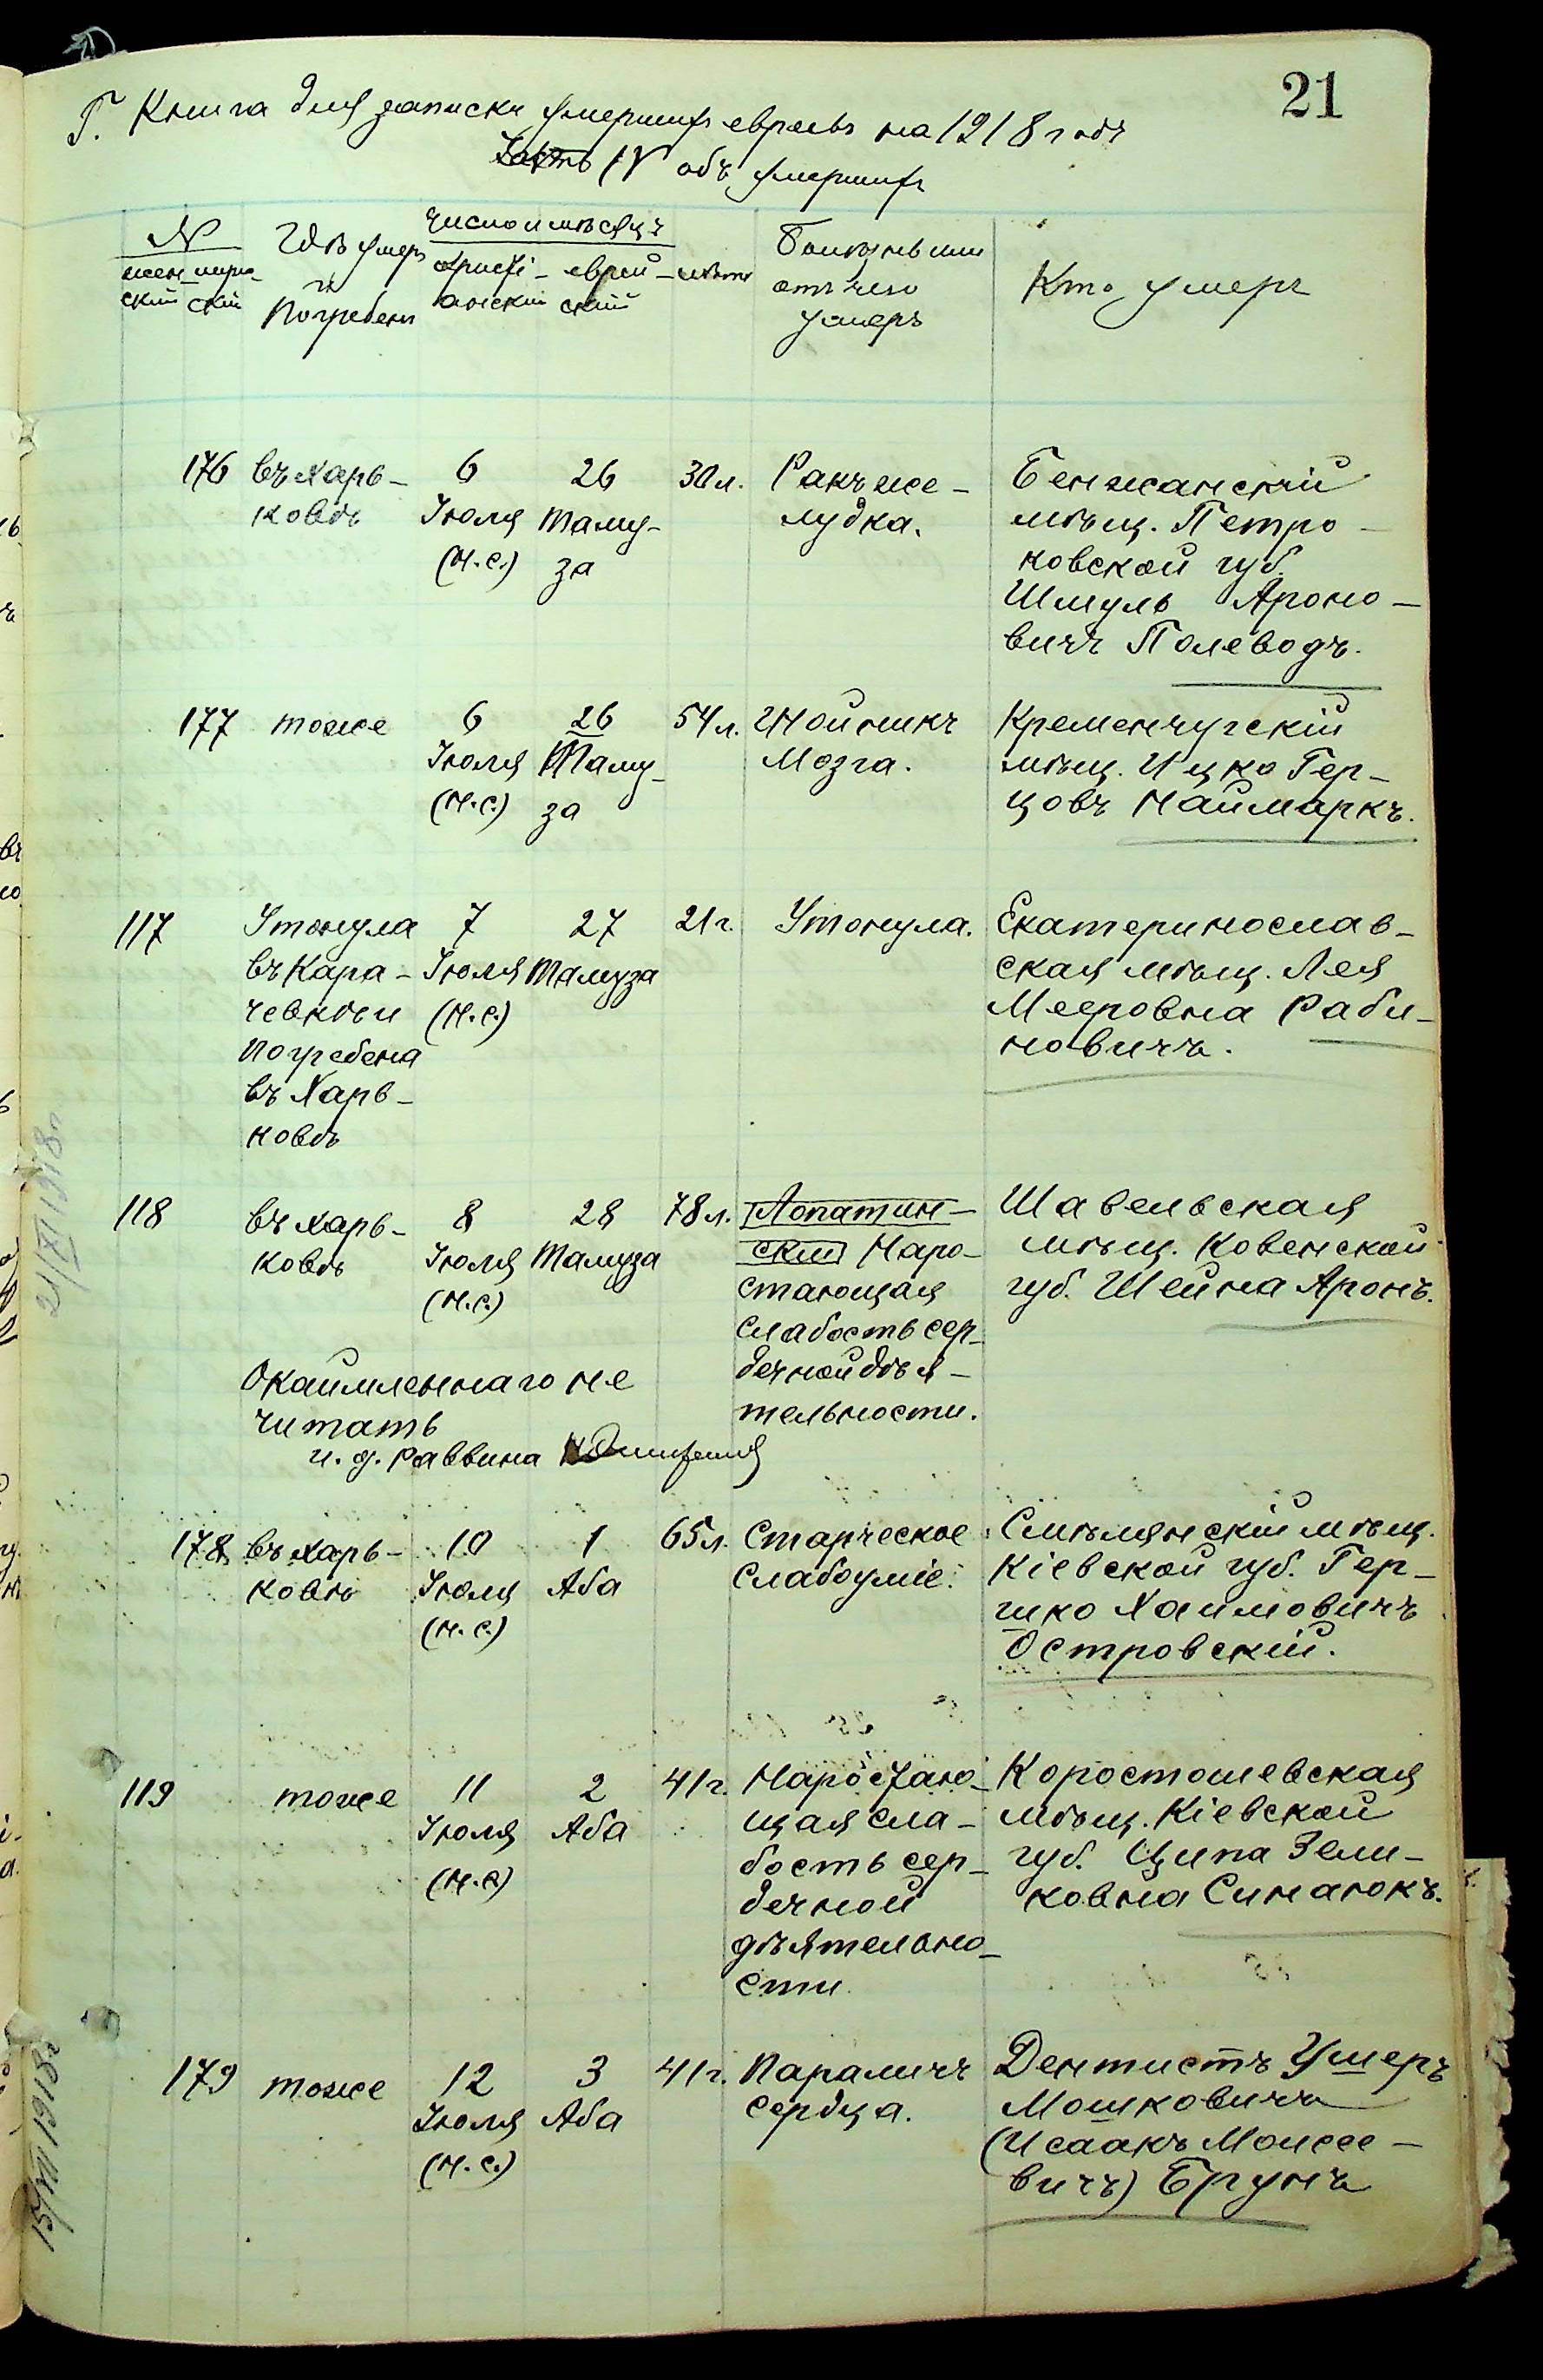 21
Г. Книга для записки умершихъ евреевъ на 1918 годъ
Часть IV объ умершихъ
№
женскій мужескій
Гдѣ умеръ и погребенъ
Число и мѣсяцъ
христіанскій еврейскій
лѣта
Болѣзнь или
отъ чего
умеръ
Кто умеръ
176 въ Харь-
ковѣ
6
Іюля
(н.с.)
26
Таму-
за
30 л.
Ракъ же-
лудка.
Бенжанскій
мѣщ. Петро-
ковской губ.
Шмуль Ароно-
вичъ Полеводъ.
177 тоже
6
Іюля
(н.с.)
26
Таму-
за
54 л.
Гнойникъ
Мозга.
Кременчугскій
мѣщ. Ицко Гер-
цовъ Наймаркъ.
117
Утонула
въ Кара-
чевкѣ и
погребена
въ Харь-
ковѣ
7
Іюля
(н.с.)
27
Тамуза
21 г.
Утонула.
Екатеринослав-
ская мѣщ. Лея
Мееровна Раби-
новичъ.
118
въ Харь-
ковѣ
8
Іюля
(н.с.)
28
Тамуза
78 л.
Лопатин-
скій Наро-
стающая
слабость сер-
дечной дѣя-
тельности.
Шавельская
мѣщ. Ковенской
губ. Шейна Аронъ.
Окаймленнаго не
читать
и. д. раввина
178 въ Харь-
ковѣ
10
Іюля
(н.с.)
1
Аба
65 л.
Старческое
слабоуміе.
Смѣлянскій мѣщ.
Кіевской губ. Гер-
шко Хаимовичъ
Островскій.
119
тоже
11
Іюля
(н.с)
2
Аба
41 г.
Наростаю-
щая сла-
бость сер-
дечной
дѣятельно-
сти
Коростошевская
мѣщ. Кіевской
губ. Ципа Зели-
ковна Синаюкъ.
179 тоже
12
Іюля
(н.с.)
3
Аба
41 г.
Параличъ
сердца.
Дентистъ Ушеръ
Мошковичъ
(Исаакъ Моисее-
вичъ) Брунъ
21/XI 1918 г.
15/XII 1918 г